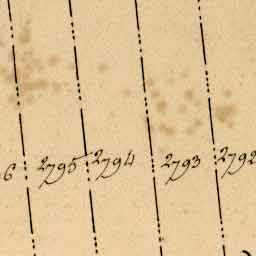 6 2795 2794 2793 2792